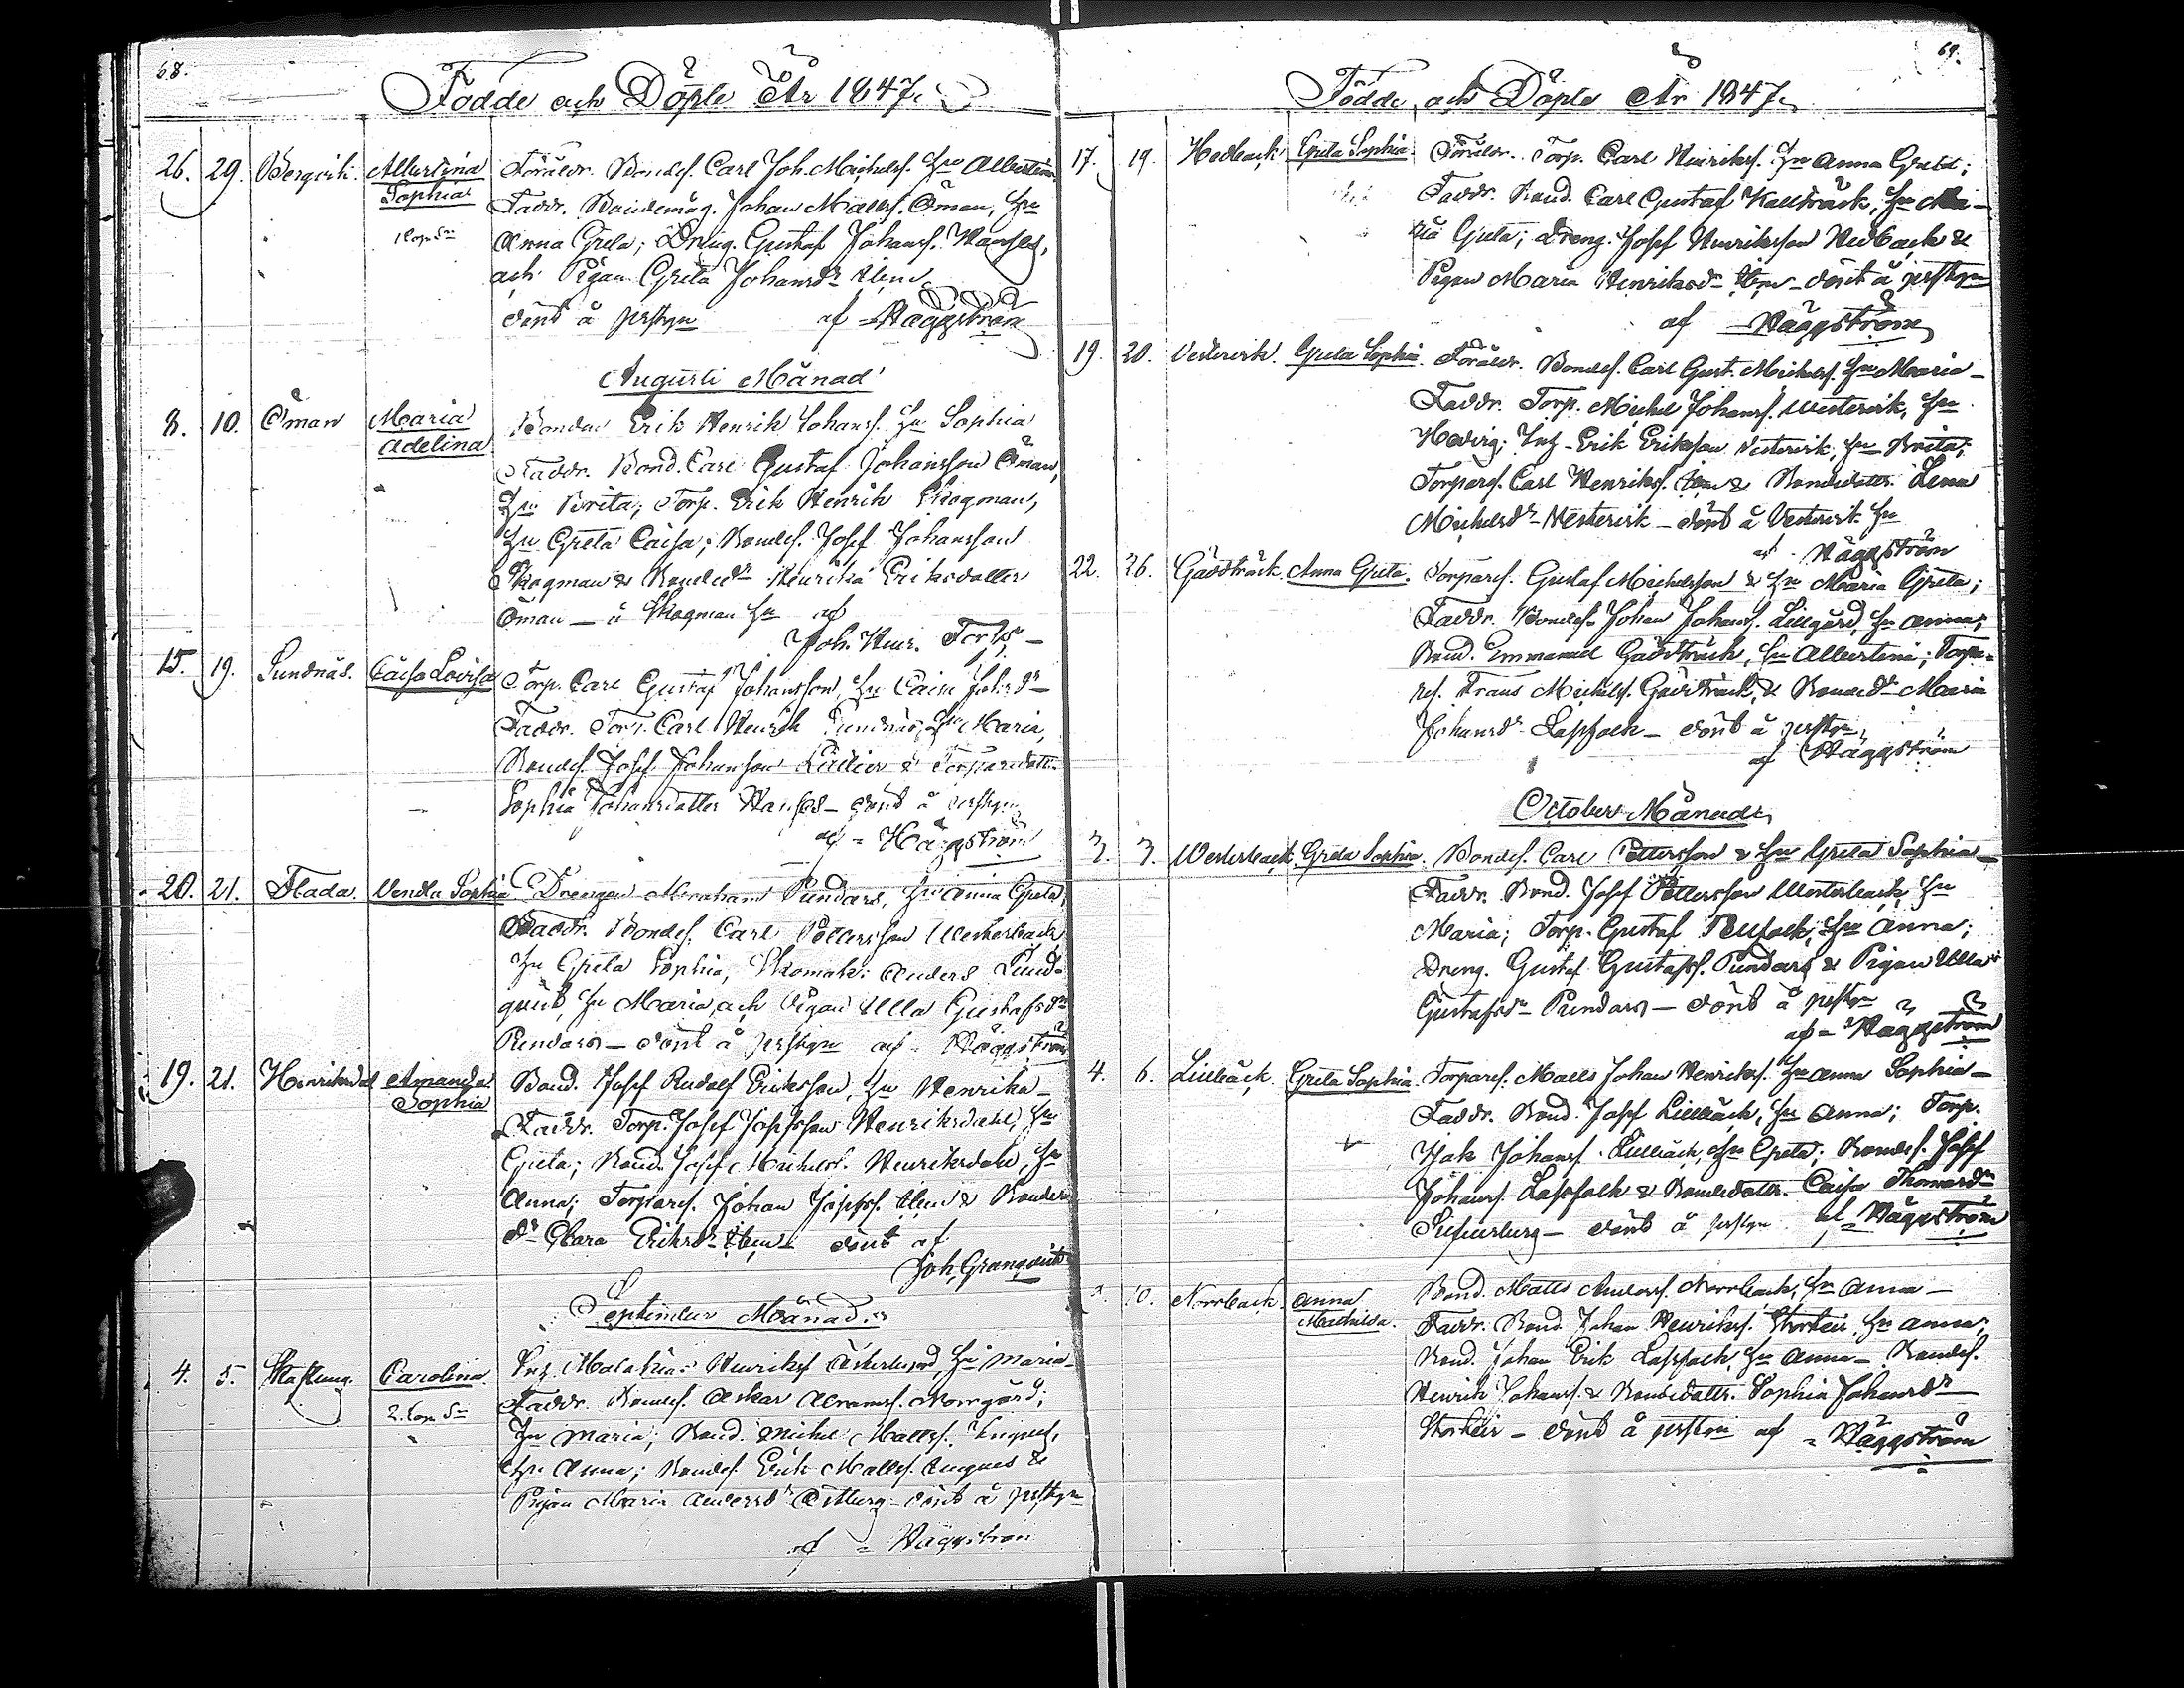 68.
Födde och Döpte År 1847.
26. 29. Bergvik. Albertina Föräldr. Bondes. Carl Joh. Michels. Hu Albertina
Sophia Faddr. Bondemåg. Johan Matts. Öman, Hu
Anna Greta; Dräng. Gustaf Johans.
och Pigan Greta Johansdr Ibm
dönt å prstgn af Häggström
Augusti Månad
8. 10. Öman Maria Bonden Erik Henrik Johans. Hu Sophia
Adelina Faddr. Bond. Carl Gustaf Johansson Öman,
Hu Brita; Torp. Erik Henrik Skogman,
Hu Greta Caisa; Bondes. Josef Johansson
Skogman & Bondedr Henrika Eriksdotter
Öman — å Skogman Hn af
Joh. Henr. Torp. —
15. 19. Sundnäs. Caisa Lovisa Torp. Carl Gustaf Johansson, Hu Caisa Johsdr —
Faddr. Torp. Carl Henrik Sundnäs, Hu Maria,
Bondes. Josef Johansson & Torparedott.
Sophia Johansdotter — dönt å prstgn
af = Häggström
20. 21. Flada. Vendla Sophia Drengen Abraham Pundars, Hu Anna Greta,
Faddr. Bondes. Carl Pettersson Westerback
Hu Greta Sophia, Skomak. Anders Lund-
qvist, Hu Maria, och Pigan Ulla Gustafsdr
Pundars — dönt å prstgn af Häggström
19. 21. Henriksdal Amanda Bond. Josef Rudolf Eriksson, Hu Henrika —
Sophia Faddr. Torp. Josef Josefsson Henriksdahl, Hu
Greta; Bond. Josef Michels. Henriksdahl, Hu
Anna; Torpares. Johan Josefs. Ibm & Bonde-
dr Clara Eriksdr Ibm — dönt af
Joh. Granqvist
September Månad.
4. 5. Carolina. Malakias Henriks. Österlund, Hu Maria —
Faddr. Bondes. Oskar Abrams. Norrgård;
Hu Maria; Bond. Michel Matts.
Hu Anna; Bondes. Erik Matts. &
Pigan Maria Andersdr Östberg — dönt å prstgn
af = Häggström
69.
Födde och Döpte År 1847.
17. 19. Hedback Greta Sophia Föräldr. Torp. Carl Henriks. Hu Anna Greta;
Faddr. Bond. Carl Gustaf Kallträsk, Hu Ma-
ria Greta; Dreng. Josef Henriksson Hedback &
Pigan Maria Henriksdr Ibm — dönt å prstgn
af Häggström
19. 20. Vestervik. Greta Sophia. Föräldr. Bondes. Carl Gust. Michels. Hu Maria —
Faddr. Torp. Michel Johans. Westervik, Hu
Hedvig; Erik Eriksson Vestervik, Hu Brita;
Torpares. Carl Henriks. Ibm & Bondedottr. Lena
Michelsdr Westervik — dönt å Vestervik Hn
af Häggström
22. 26. Gäddträsk. Anna Greta. Torpares. Gustaf Michelsson & Hu Maria Greta;
Faddr. Bondes. Johan Johans. Lillgård, Hu Anna;
Bond. Emmanuel Gäddträsk, Hu Albertina; Torpa-
res. Frans Michels. Gäddträsk & Bondedr Maria
Johansdr Lassfolk — dönt å prstgn,
af Häggström
October Månad.
3. 3. Westerback Greta Sophia. Bondes. Carl Pettersson & Hu Greta Sophia —
Faddr. Bond. Josef Pettersson Westerback, Hu
Maria; Torp. Gustaf Hu Anna;
Dreng. Gustaf Gustafs. Pundars & Pigan Ulla
Gustafsdr Pundars — dönt å prstgn
af = Häggström
4. 6. Lillbäck. Greta Sophia. Torpares. Matts Johan Henriks. Hu Anna Sophia —
Faddr. Bond. Josef Lillbäck, Hu Anna; Torp.
Isak Johans. Lillbäck, Hu Greta; Bondes. Josef
Johans. Lassfolk & Bondedottr. Caisa Thomasdr
— dönt å prstgn af = Häggström
10. Norrback. Anna Bond. Matts Anders. Norrback, Hu Anna —
Mathilda. Faddr. Bond. Johan Henriks. Hu Anna;
Bond. Johan Erik Lassfolk, Hu Anna — Bondes.
Henrik Johans. & Bondedottr. Sophia Johansdr
— dönt å prstgn af = Häggström